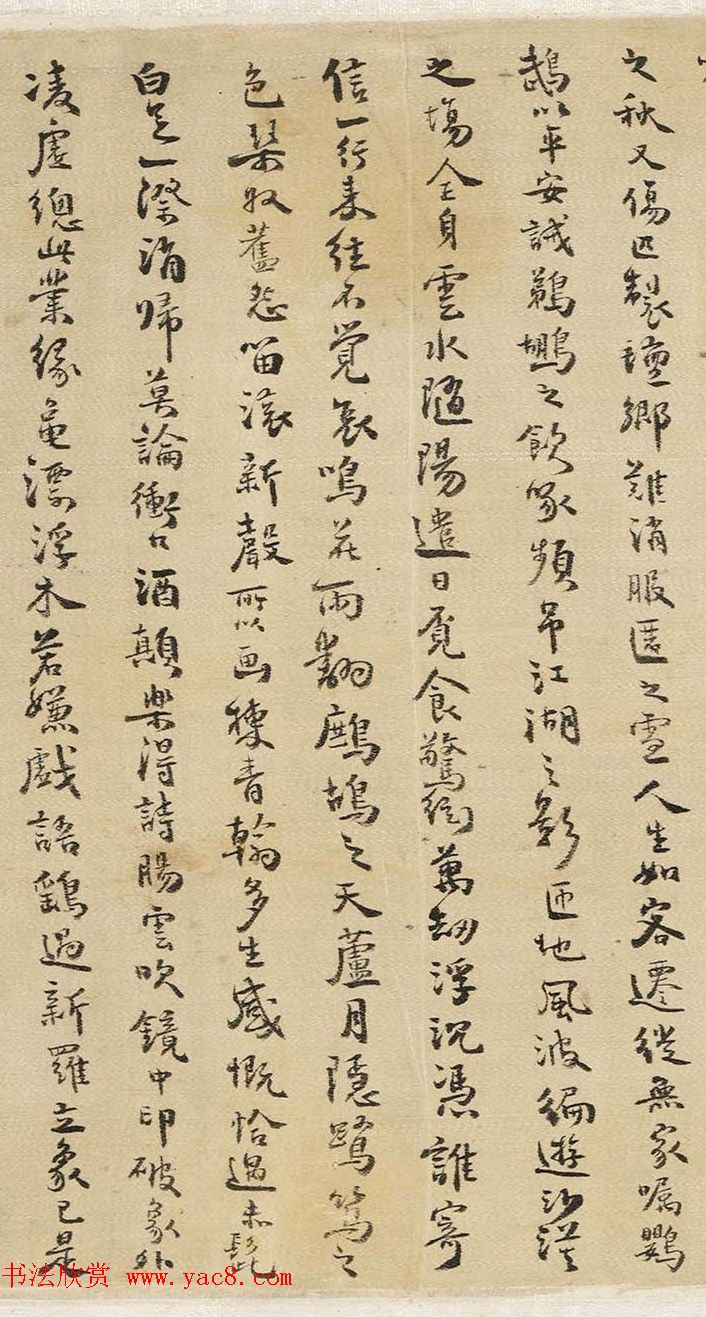 之秋又傷匹製璮鄉難消服匿之雪人生如客遷從無家囑鸚
鵡以平安誡鷯鷃之飲啄頻弔江湖之影匝地風波編遊沙漠
之場全身雲水隨陽遣日覓食驚絢萬劫浮沉憑誰寄
信一行来往不覺哀鳴花雨翻鷓鴣之天蘆月隱鷺鷥之
色琹奴舊怨留滾新聲所以画棟青翰多生感慨恰過赤髭
白足一際消歸莫論衝口酒顛樂得詩腸雲吹鏡中印破象外
凌虛總此業緣黿漂浮木若嫌戲語鷂過新羅立象已是
书法欣赏 www.yac8.com